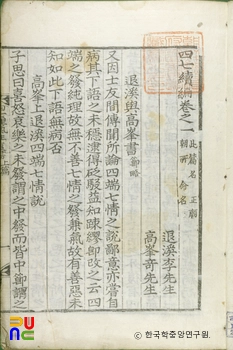 四七續編卷之一
此篇名正廟
朝所命名
退溪李先生
高峯奇先生
退溪與高峯書節略
又因士友間傳聞所論四端七情之說鄙意亦嘗自
病其下語之未穩逮得砭駁益知䟽繆卽改之云四
端之發純理故無不善七情之發兼氣故有善惡未
知如此下語無病否
高峯上退溪四端七情說
子思曰喜怒哀樂之未發謂之中發而皆中節謂之
© 한국학중앙연구원